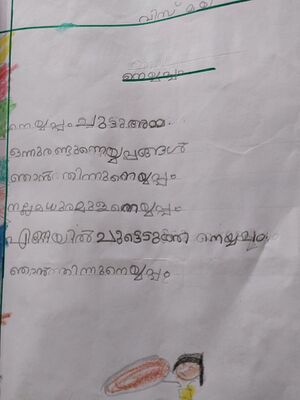 വിസ്മയ
നെയ്യപ്പം
നെയ്യപ്പം ചുട്ടു അമ്മ.
ഒന്നു രണ്ടു നെയ്യപ്പങ്ങൾ
ഞാൻ തിന്നു നെയ്യപ്പം
നല്ല മധുരമുള്ള നെയ്യപ്പം
എണ്ണയിൽ ചുട്ടെടുത്ത നെയ്യപ്പം
ഞാൻ തിന്നു നെയ്യപ്പം